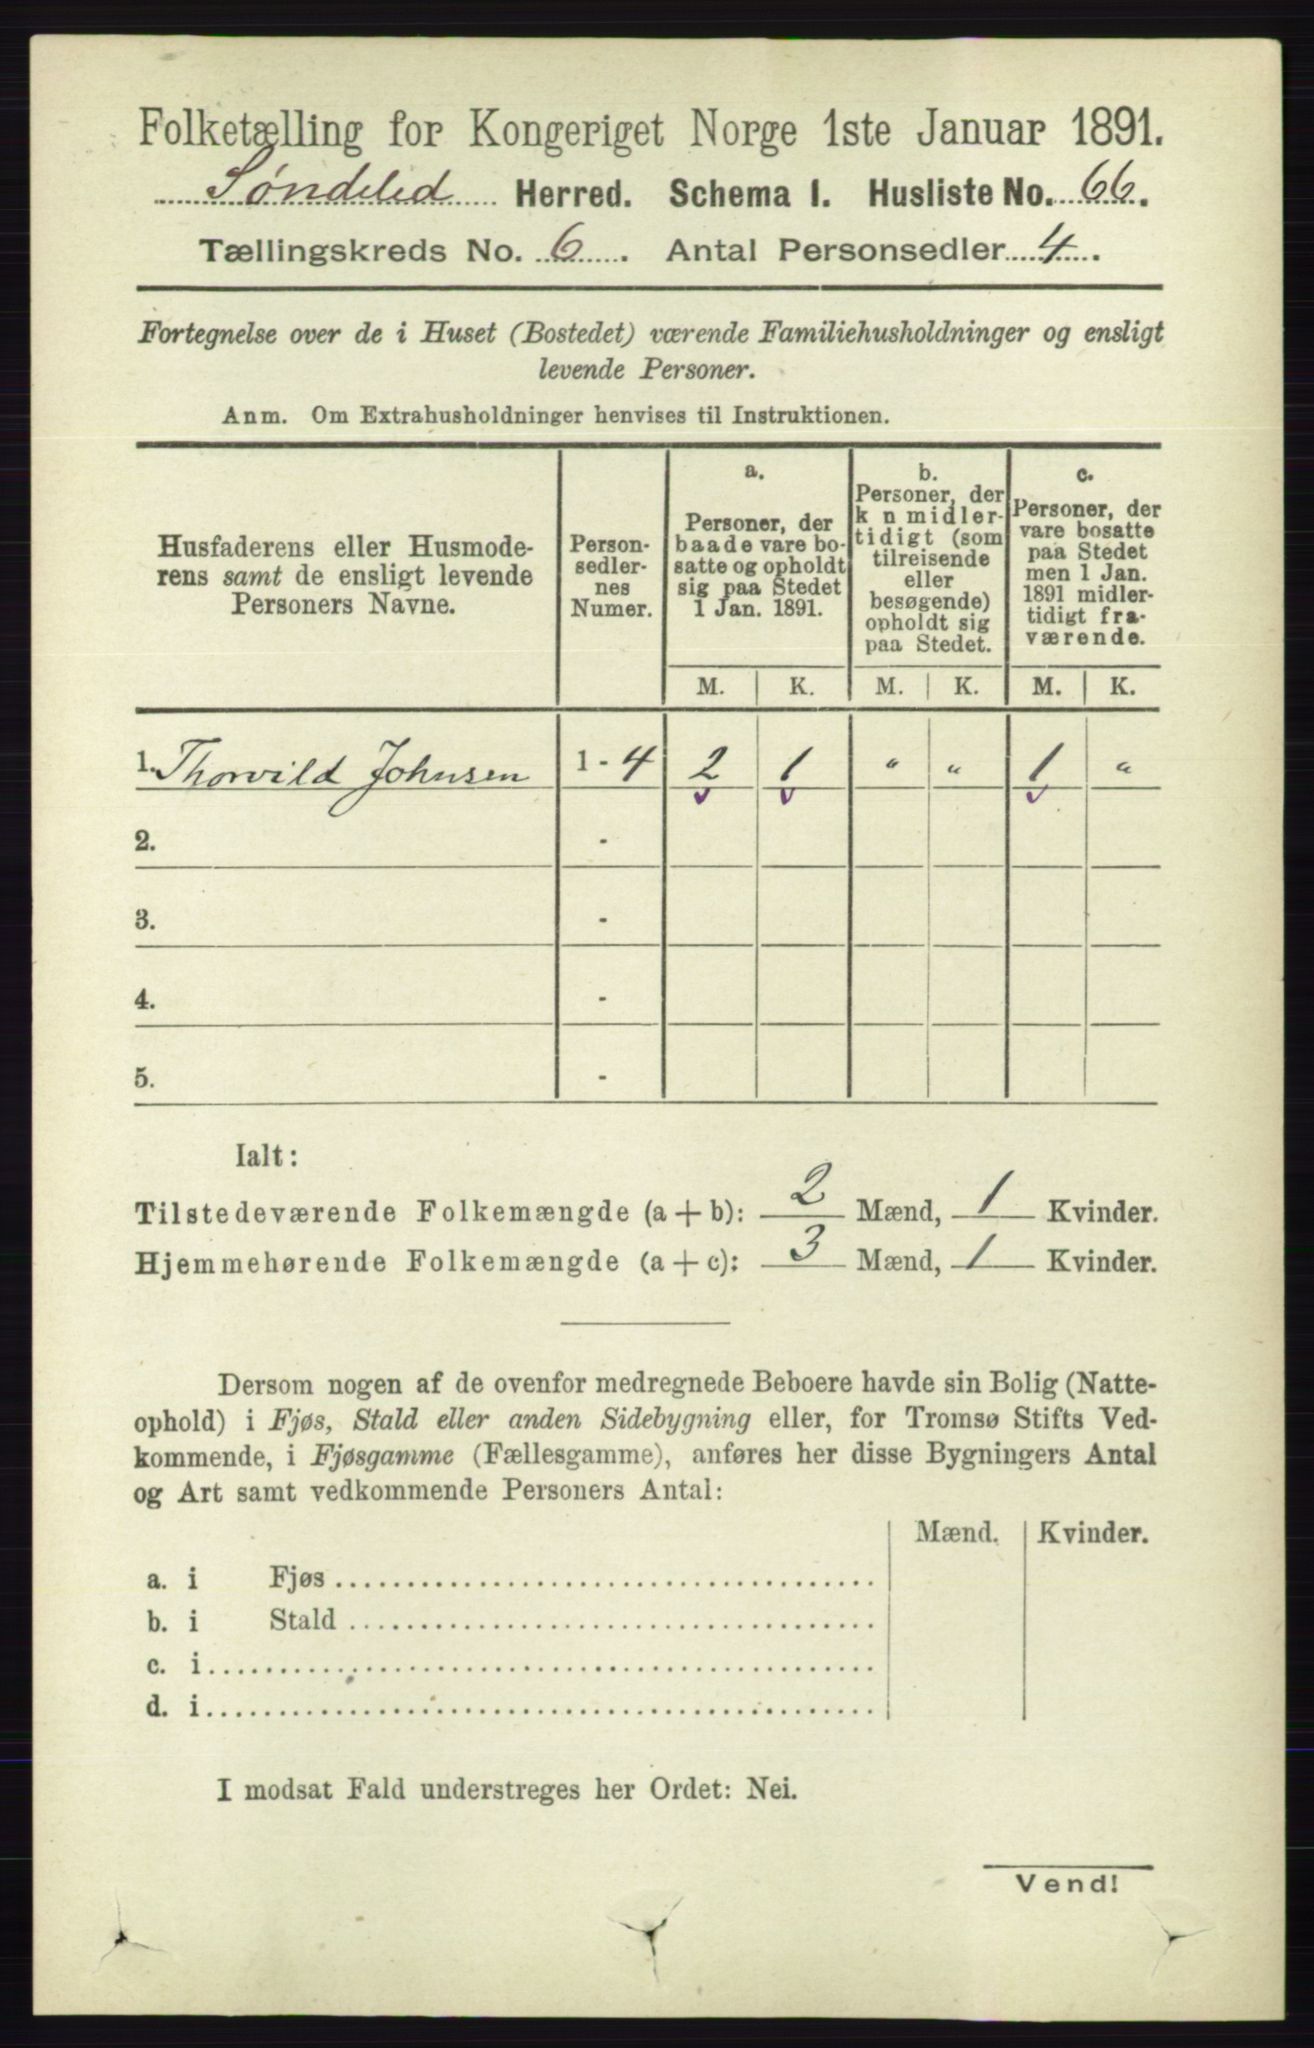 Folketælling for Kongeriget Norge 1ste Januar 1891.
Søndeled Herred. Schema I. Husliste No. 66.
Tællingskreds No. 6. Antal Personsedler 4.
Fortegnelse over de i Huset (Bostedet) værende Familiehusholdninger og ensligt
levende Personer.
Anm. Om Extrahusholdninger henvises til Instruktionen.
Husfaderens eller Husmode-
rens samt de ensligt levende
Personers Navne.
Person-
sedler-
nes
Numer.
a.
Personer, der
baade vare bo-
satte og opholdt
sig paa Stedet
1 Jan. 1891.
b.
Personer, der
k n midler-
tidigt (som
tilreisende
eller
besøgende)
opholdt sig
paa Stedet.
c.
Personer, der
vare bosatte
paa Stedet
men 1 Jan.
1891 midler-
tidigt fra-
værende.
M. K. M. K. M. K.
1. Thorvild Johnsen 1 - 4 2 1 " " 1 "
2. -
3. -
4. -
5. -
Ialt:
Tilstedeværende Folkemængde (a + b): 2 Mænd, 1 Kvinder.
Hjemmehørende Folkemængde (a + c): 3 Mænd, 1 Kvinder.
Dersom nogen af de ovenfor medregnede Beboere havde sin Bolig (Natte-
ophold) i Fjøs, Stald eller anden Sidebygning eller, for Tromsø Stifts Ved-
kommende, i Fjøsgamme (Fællesgamme), anføres her disse Bygningers Antal
og Art samt vedkommende Personers Antal:
Mænd. Kvinder.
a. i Fjøs
b. i Stald
c. i
d. i
I modsat Fald understreges her Ordet: Nei.
Vend!